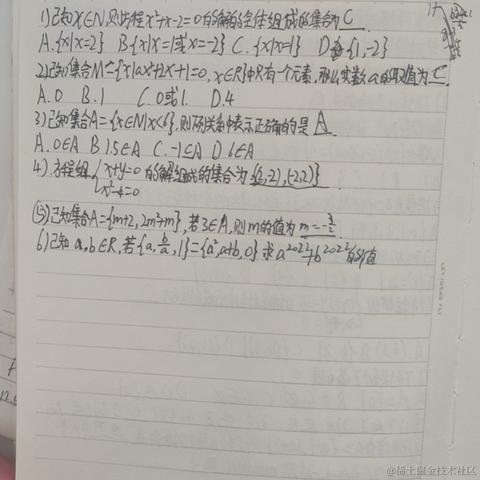 1)已知x∈N,则方程x²+x-2=0的解的全体组成的集合为 C
A.{x|x=2} B.{x|x=1或x=-2} C.{x|x=1} D.{1,-2}
2)已知集合M={x|ax²+2x+1=0,x∈R}中只有一个元素,那么实数a的取值为 C
A.0 B.1 C.0或1 D.4
3)已知集合A={x∈N|x<6},则下列关系中表示正确的是 A
A.0∈A B.1.5∈A C.-1∈A D.6∈A
4)方程组{x+y=0 的解组成的集合为{(2,-2),(-2,2)}
x²-4=0
⑤已知集合A={m+2,2m²+m},若3∈A,则m的值为 m=-3/2
6)已知a,b∈R,若{a,b/a,1}={a²,a+b,0}求a²⁰²²+b²⁰²²的值
LET IDEAS FLY
@稀土掘金技术社区